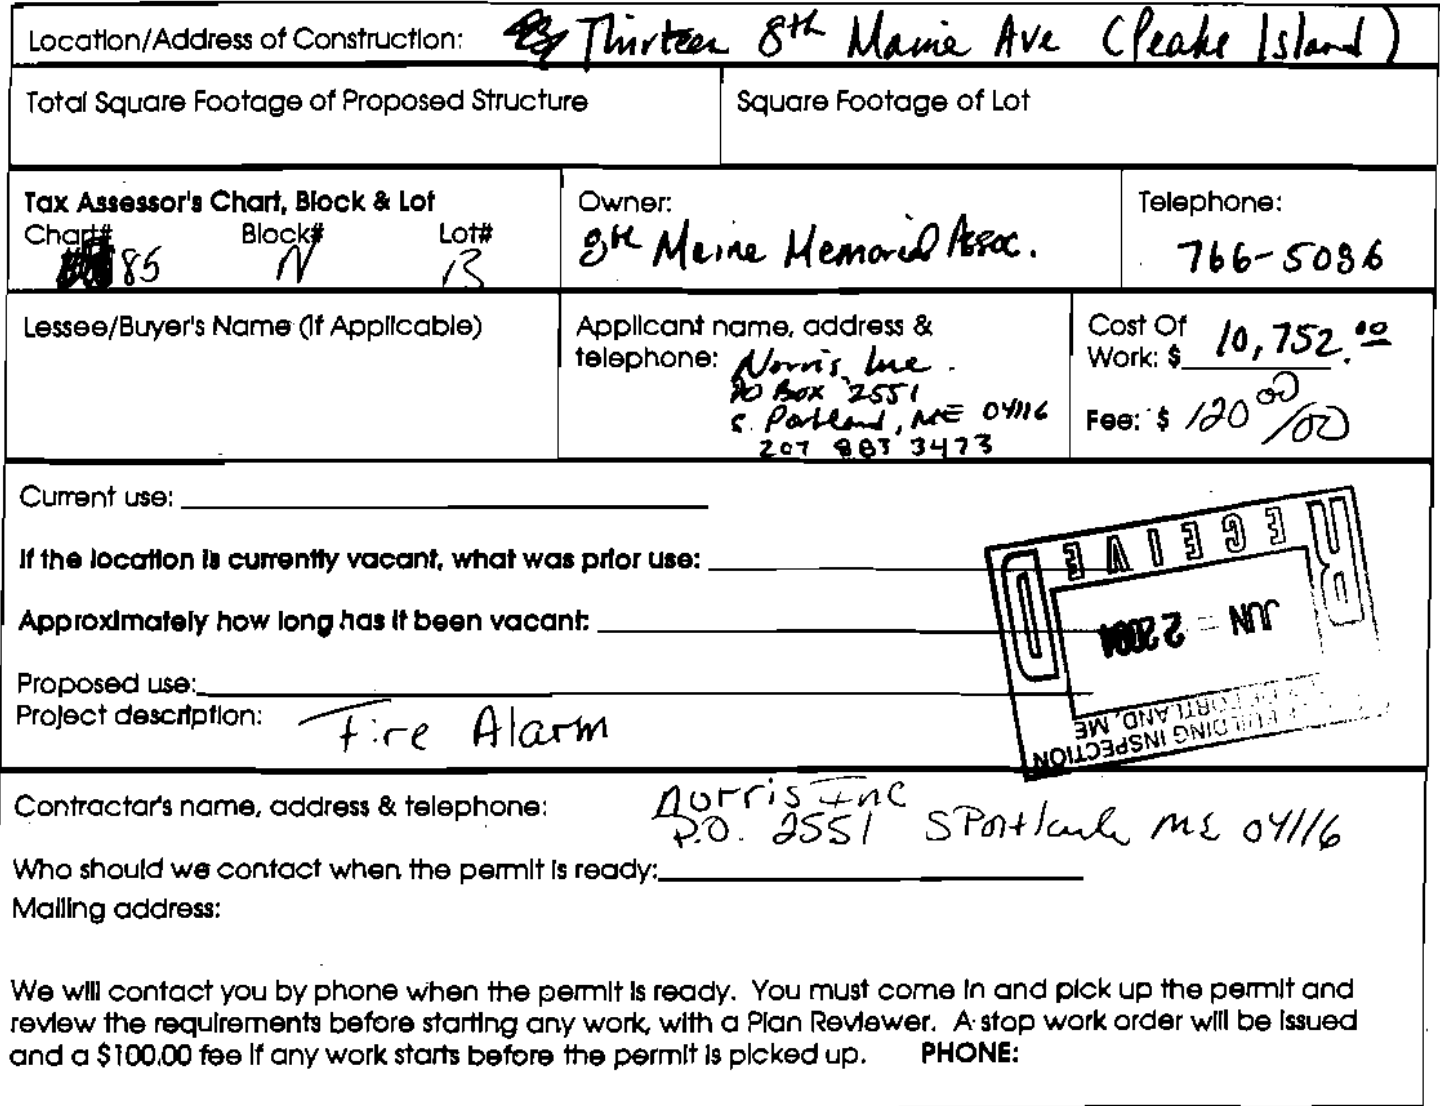 Location/Address of Construction: Thirteen 8th Maine Ave (Peaks Island)
Total Square Footage of Proposed Structure
Square Footage of Lot
Tax Assessor's Chart, Block & Lot
Chart# Block# Lot#
85 N 13
Owner:
8th Maine Memorial Assoc.
Telephone:
766-5086
Lessee/Buyer's Name (If Applicable)
Applicant name, address &
telephone: Norris, Inc.
PO Box 2551
S. Portland, ME 04116
207 883 3473
Cost Of
Work: $ 10,752.00
Fee: $ 120 00/00
Current use:
If the location is currently vacant, what was prior use:
Approximately how long has it been vacant:
Proposed use:
Project description: Fire Alarm
RECEIVED
JUN - 2 2004
BUILDING INSPECTION
PORTLAND, ME
Contractor's name, address & telephone: Norris Inc
P.O. 2551 S Portland ME 04116
Who should we contact when the permit is ready:
Mailing address:
We will contact you by phone when the permit is ready. You must come in and pick up the permit and
review the requirements before starting any work, with a Plan Reviewer. A stop work order will be issued
and a $100.00 fee if any work starts before the permit is picked up. PHONE: